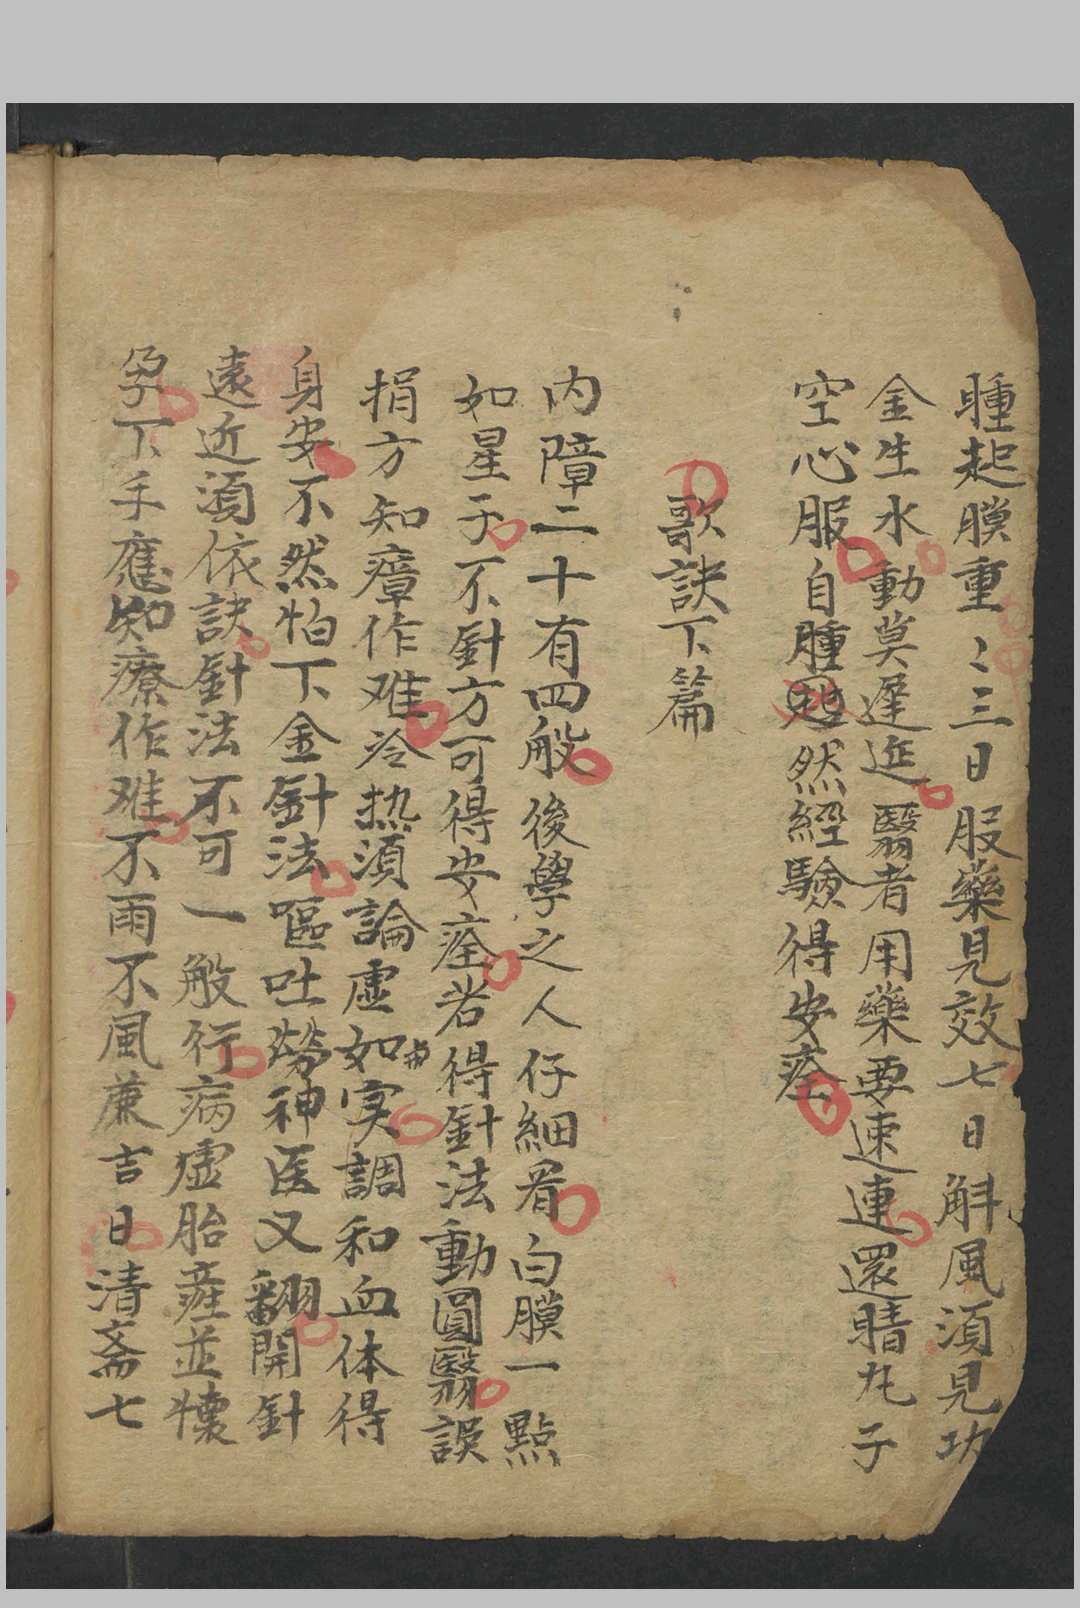 腫起膜重〻三日服藥見效七日解風須見功
金生水動莫遲延翳者用藥要速速連還睛丸子
空心服自腫起然經驗得安痊
歌訣下篇
内障二十有四般後學之人仔細看白膜一點
如星子不針方可得安痊若得針法動圓翳誤
損方知瘴作难冷热須論虛如實調和血体得
身安不然怕下金針法嘔吐勞神医又翻開針
遠近須依訣針法不可一般行病虛胎產並懷
孕下手應知療作难不雨不風蒹吉日清斎七